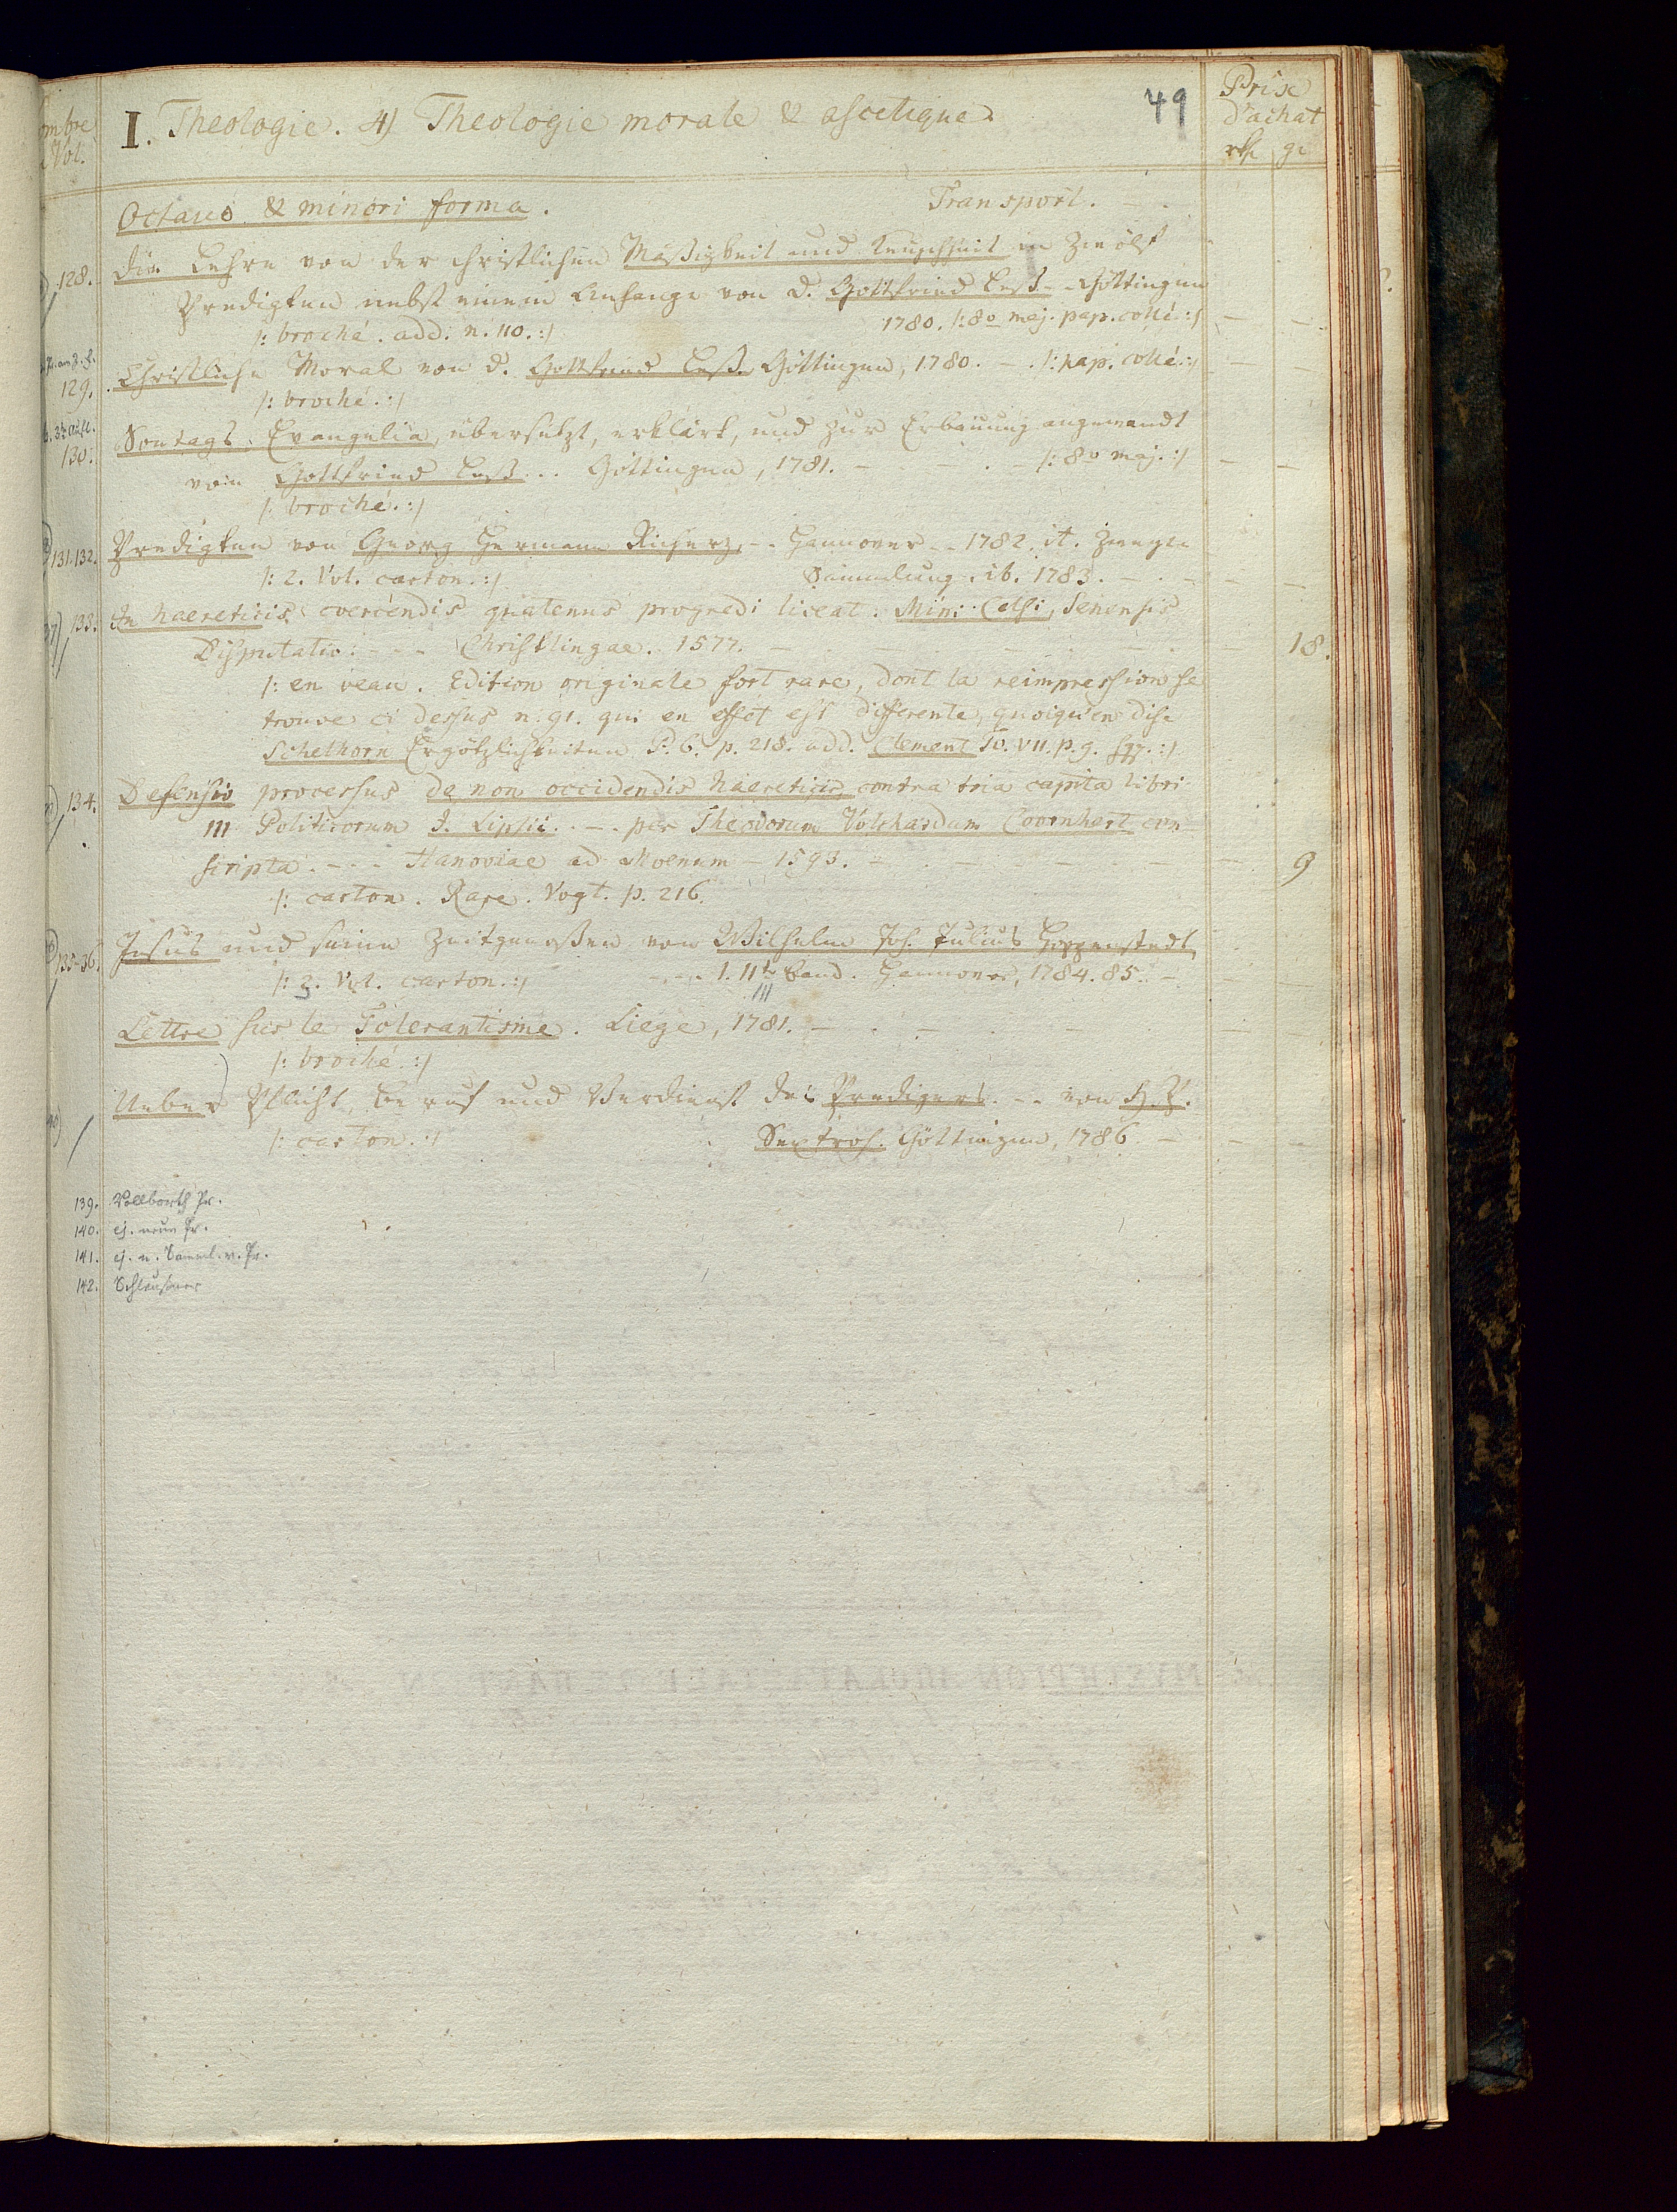 I. Theologie. 4) Theologie morale & ascetique.
49
Prix
d'achat
rth gr
mbre
Vol.
Octavo & minori forma. Transport. -
128. Die Lehre von der christlichen Mäßigkeit und Keuschheit in Zwölf
Predigten nebst einem Anhange von D. Gottfried Leß -- Göttingen
/: broché. add. n. 110. :/ 1780. /: 8o maj. pap. collé :/
129. Christliche Moral von D. Gottfried Leß. Göttingen, 1780. - . /: pap. collé. :/
/: broché. :/
130. Sontags-Evangelia, übersetzt, erklärt, und zur Erbauung angewandt
von Gottfried Leß... Göttingen, 1781. - /: 8o maj. :/
/: broché. :/
131.132. Predigten von Georg Hermann Richerz, -- Hannover -- 1782. it. Zweyte
/: 2. Vol. carton. :/ Sammlung. ib. 1783. -
133. In haereticis coercendis quatenus progredi liceat: Mini Celsi, Senensis
Disputatio: --- Christlingae. 1577. - 18.
/: en veau. Edition originale fort rare, dont la reimpression se
trouve ci dessus n. 91. qui en effet est differente, quoiqu'en dise
Schelhorn Ergötzlichkeiten P. 6. p. 218. add. Clement To. VII. p. 9. sqq. :/
134. Defensio processus de non occidendis haereticis, contra tria capita libri
III Politicorum J. Lipsii. . - . per Theodorum Volchardum Coornhert con-
scripta. --- Hanoviae ad Moenum - 1593. - 9
/: carton. Rare. Vogt. p. 216.
135-36. Jesus und seine Zeitgenoßen von Wilhelm Joh. Julius Hoppenstedt
/: 3. Vol. carton. :/ ---- 1. IIter Band. Hannover, 1784. 85. -
III
Lettre sur le Tolerantisme. Liege, 1781. -
/: broché. :/
Ueber Pflicht, Beruf und Verdienst des Predigers. -- von H. P.
/: carton. :/ Sextroh. Göttingen, 1786. -
139. Vollborth Pr.
140. ej. neue Pr.
141. ej. n. Samml. v. Pr.
142. Schleusner